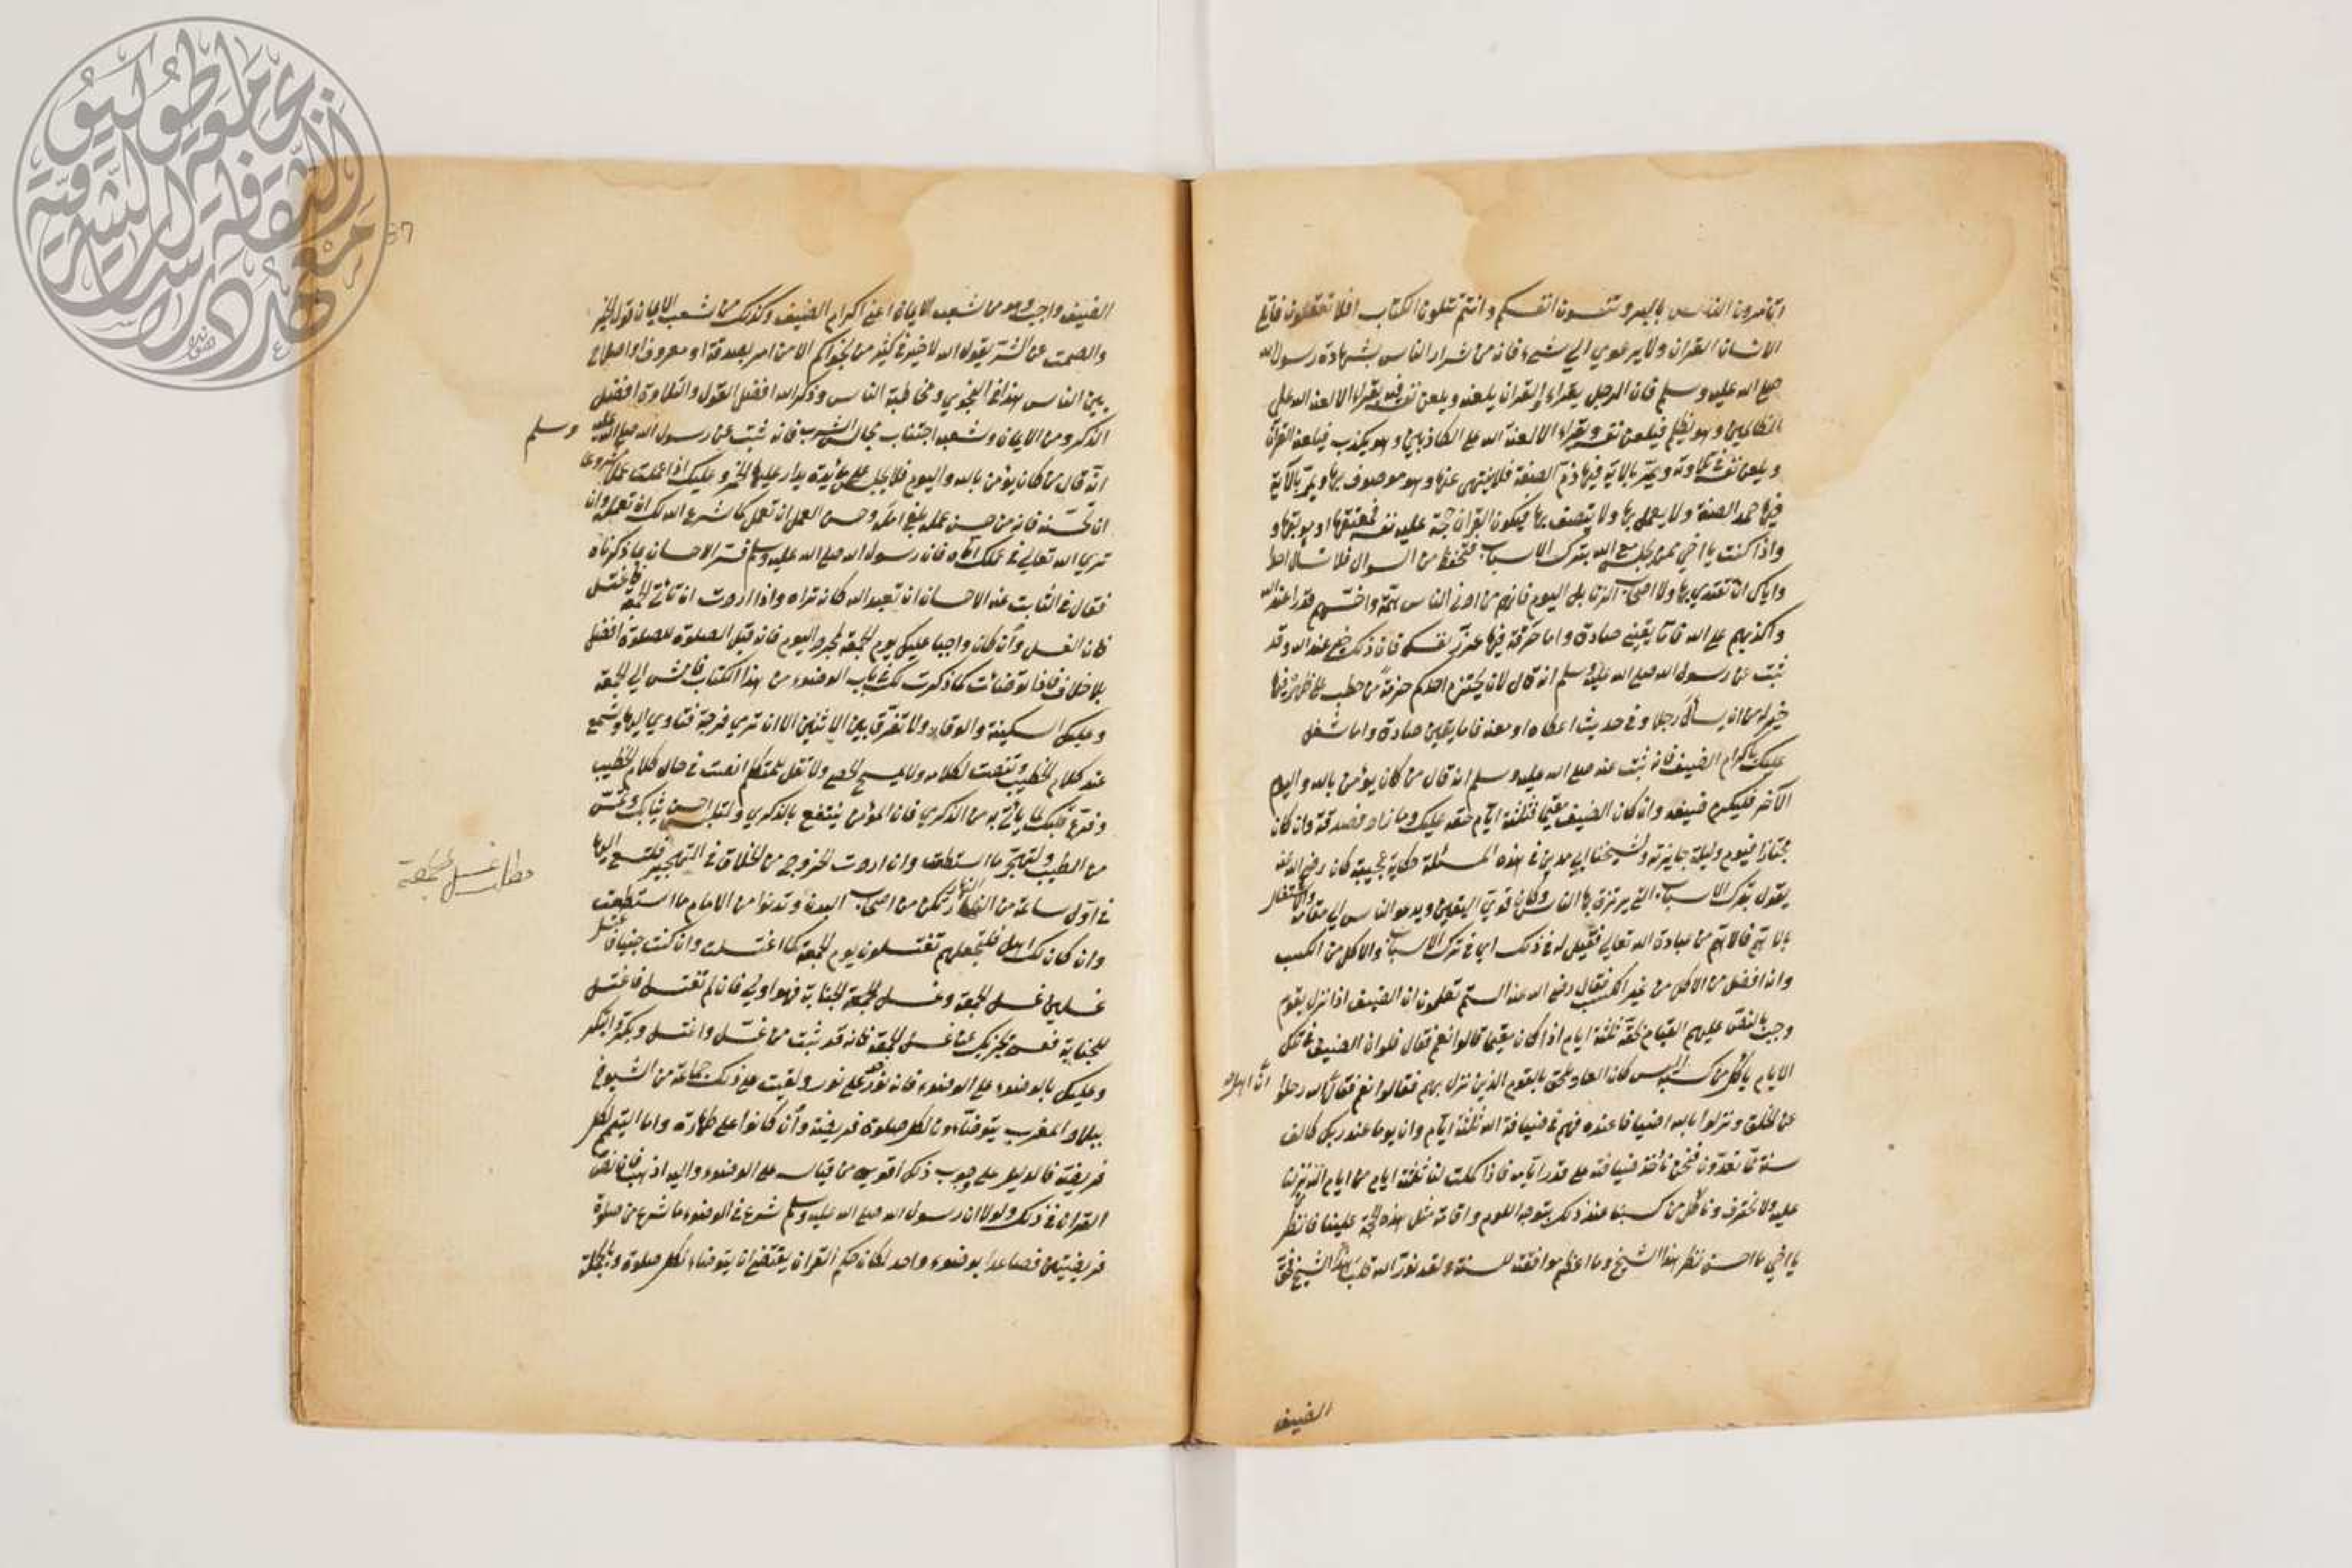 اتأمرون الناس بالبر وتنسون انفسكم وانتم تتلون الكتاب افلا تعقلون فاتل
الانسان القران ولا يرعوي الي شيء فانه من شرار الناس بشهادة رسول الله
صلى الله عليه وسلم فان الرجل يقراء القران يلعنه ويلعن نفسه فيه يقراء الا لعنة الله على
الظالمين وهو يظلم فيلعن نفسه ويقراء الا لعنة الله على الكاذبين وهو يكذب فيلعنه القران
ويلعن نفسه في تلاوته ويمر بالاية فيها ذم الصفة فلا ينتهى عنها وهو موصوف بها ويمر بالاية
فيها حمد الصفة ولا يعمل بها ولا يتصف بها فيكون القران حجة عليه
واذا كنت يا اخي ممن يجلس مع الله بترك الاسباب فتحفظ من السوال فلا تسال احدا
واياك ان تقتدي بهاولا اصحاب الزنابيل اليوم فانهم من ادنى الناس همة واخسهم قدرا عند الله
واكذبهم على الله فاما يقين صادق واما حرفة فيها عز نفسك فان ذلك خير عند الله وقد
ثبت عن رسول الله صلى الله عليه وسلم انه قال لان يحتزم احدكم حزمة من حطب على ظهره فيبيعها
خير له من ان يسأل رجلا وفي حديث اعطاه او منعه فاما يقين صادق واما شغل
عليك باكرام الضيف فانه ثبت عنه صلى الله عليه وسلم انه قال من كان يؤمن بالله واليوم
الآخر فليكرم ضيفه وان كان الضيف مقيما فثلثة ايام حقه عليك وما زاد فصدقة وان كان
مجتازا فيوم وليلة جايزته ولشيخنا ابي مدين في هذه المسئلة حكاية عجيبة كان رضي الله عنه
يقول بترك الاسباب التي يرتزق بها الناس وكان قوي اليقين ويدعو الناس الى مقامه والاشتغال
بالاهم فالاهم من عبادة الله تعالى فقيل له في ذلك اي في ترك الاسباب والاكل من الكسب
وانه افضل من الاكل من غير الكسب فقال رضي الله عنه الستم تعلمون ان الضيف اذا نزل بقوم
وجب بالنص عليهم القيام بحقه ثلثة ايام اذا كان مقيما قالوا نعم فقال فلو ان الضيف في تلك
الايام يأكل من كسبه اليس كان العار يلحق بالقوم الذين نزل بهم فقالوا نعم فقال ان اهل الله رحلوا
عن الخلق ونزلوا بالله اضيافا عنده فهم في ضيافة الله ثلثة ايام وان يوما عند ربك كالف
سنة مما تعدون فنحن نأخذ ضيافته على قدر ايامه فاذا كملت لنا ثلثة ايام من ايام الله نزلنا
عليه ولا نحترف ونأكل من كسبنا عند ذلك يتوجه اللوم واقامة مثل هذه الحجة علينا فانظر
يا اخي ما احسن نظر هذا الشيخ وما اعظم موافقته للسنة ولقد نور الله قلب هذا الشيخ فحق
الضيف
الضيف واجب وهو من شعب الايمان اعني اكرام الضيف وكذلك من شعب الايمان قول الخير
والصمت عن الشر يقول الله لا خير في كثير من نجواكم الا من امر بصدقة او معروف او اصلاح
بين الناس هذا في النجوي ومخاطبة الناس وذكر الله افضل القول والتلاوة افضل
الذكر ومن الايمان وشعبه اجتناب مجالس الشرب فانه ثبت عن رسول الله صلى الله عليه وسلم
انه قال من كان يؤمن بالله واليوم فلا يجلس على مائدة يدار عليها الخمر وعليك اذا عملت عملا مشروعا
ان تحسنه فانه من حسن عمله بلغ امله وحسن العمل ان تعمل كما شرع الله لك ان تعمله وان
تري الله تعالى في عملك اياه فان رسول الله صلى الله عليه وسلم فسر الاحسان بما ذكرناه
فقال في الثابت عنه الاحسان ان تعبد الله كانك تراه واذا اردت ان تأتي الجمعة فاغتسل
فان الغسل وان كان واجبا عليك يوم الجمعة لمجرد اليوم فانه قبل الصلوة للصلوة افضل
بلا خلاف فاذا توضأت كما ذكرت لك في باب الوضوء من هذا الكتاب فامش الى الجمعة
وعليك السكينة والوقار ولا تفرق بين الاثنين الا ان تري فرجة فتاوي اليها وتسمع
عند كلام الخطيب وتنصت لكلامه ولا تمسح الحصى ولا تقل لمتكلم انصت في حال كلام الخطيب
وفرغ قلبك لما يأتي به من الذكرى فان المؤمن ينتفع بالذكري ولتلبس احسن ثيابك وتمس
من الطيب ولتهجر ما استطعت وان اردت الخروج من الخلاف في التهجير فلتسع اليها
في اول ساعة من النهار تكن من اصحاب البدنة وتدنو من الامام ما استطعت
وان كان لك اهل فلتجعلهم يغتسلون يوم الجمعة كما اغتسلت وان كنت جنبا فاغتسل
غسلين غسل الجمعة وغسل الجنابة فهو اولى فان لم تغتسل فاغتسل
للجنابة فعسى يجزيك عن غسل الجمعة فانه قد ثبت من غسل واغتسل وبكر وابتكر
وعليك بالوضوء على الوضوء فانه نور على نور ولقيت على ذلك جماعة من الشيوخ
ببلاد المغرب يتوضأون لكل صلوة فريضة وان كانوا على طهارة واما التيمم لكل
فريضة فالدليل على وجوب ذلك اقوى من قياسه على الوضوء واليه اذهب فان نص
القران في ذلك ولولا ان رسول الله صلى الله عليه وسلم شرع في الوضوء ما شرع من صلوة
فريضتين فصاعدا بوضوء واحد لكان حكم القران يقتضي ان يتوضاء لكل صلوة وبالجملة
مطلب غسل الجمعة
87